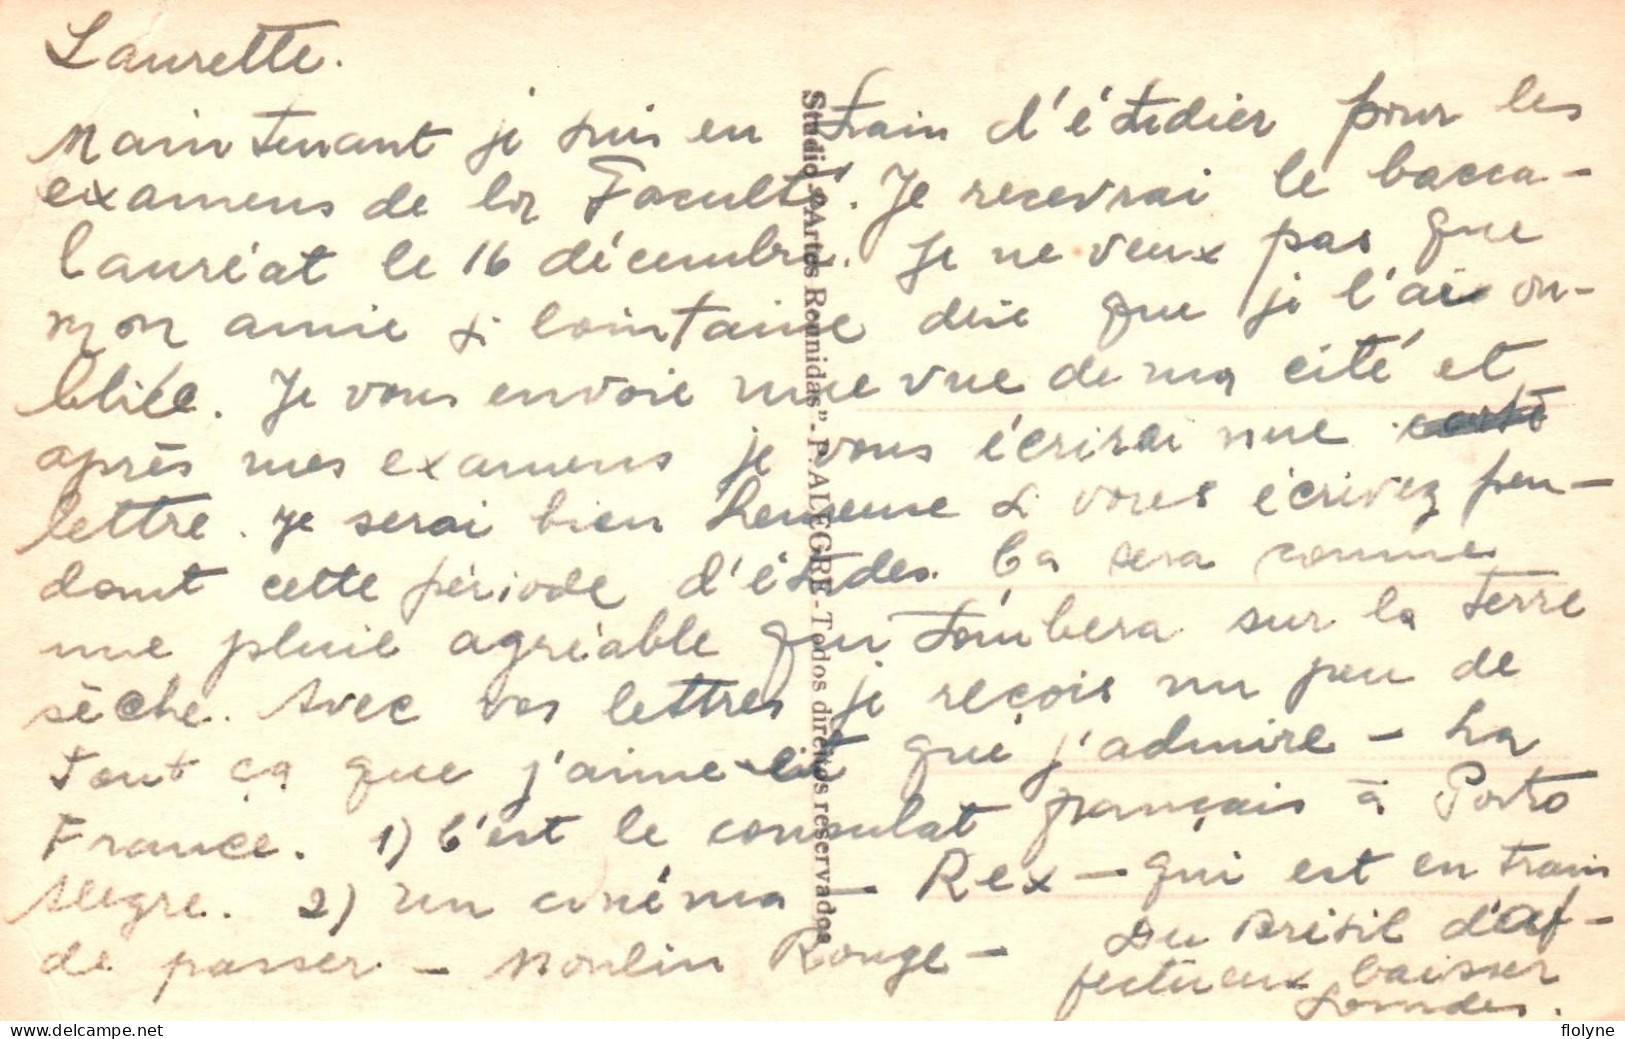 Laurette.
Maintenant je suis en train d'étudier pour les
examens de la Faculté. Je recevrai le bacca-
lauréat le 16 décembre. Je ne veux pas que
mon amie si lointaine dise que je l'ai ou-
bliée. Je vous envoie une vue de ma cité et,
après mes examens je vous écrirai une carte
lettre. Je serai bien heureuse si vous écrivez pen-
dant cette période d'études. Ça sera comme
une pluie agréable qui tombera sur la terre
sèche. Avec vos lettres je reçois un peu de
tout ça que j'aime et qui j'admire - La
France. 1) C'est le consulat français à Porto
Alegre. 2) Un cinéma - Rex - qui est en train
de passer - Moulin Rouge -
Du Brésil d'af-
fectueux baisser
Studio "Artes Reunidas" - P. ALEGRE - Todos direitos reservados
flolyne